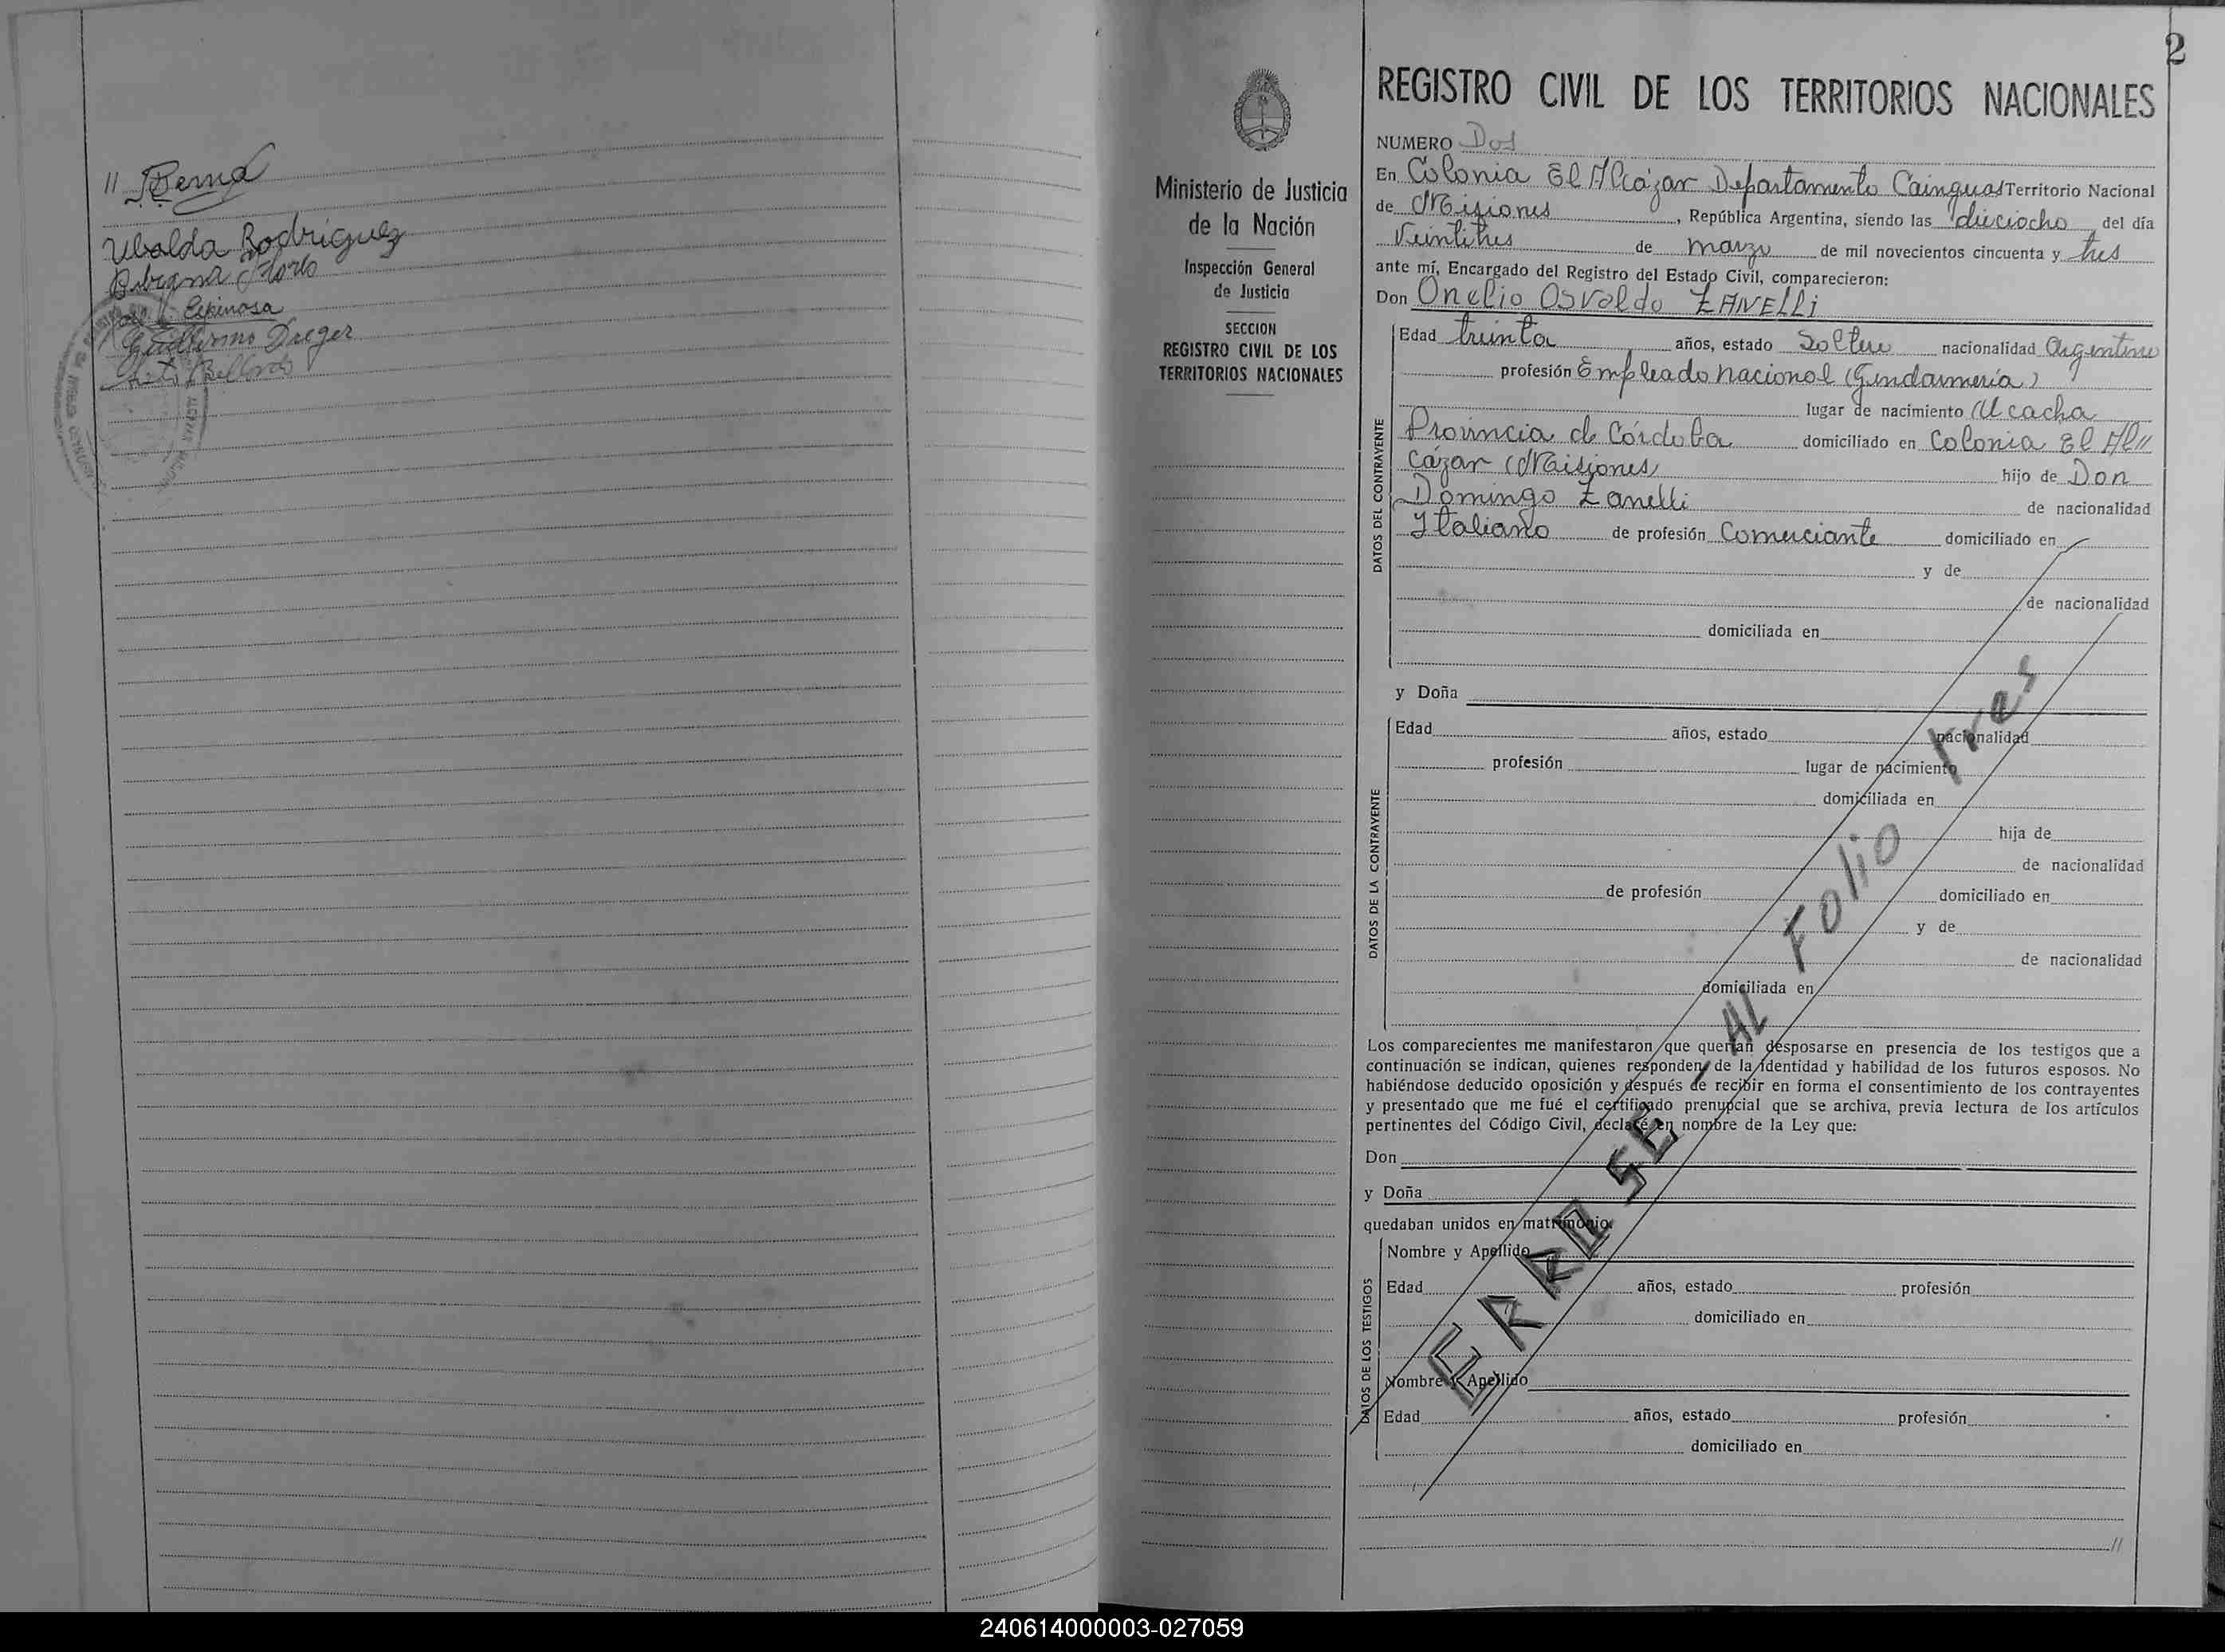 // Berna
Ubalda Rodriguez
Bibiana Flores
Espinosa
Guillermo Dreger
2
REGISTRO CIVIL DE LOS TERRITORIOS NACIONALES
Ministerio de Justicia
de la Nación
Inspección General
de Justicia
SECCION
REGISTRO CIVIL DE LOS
TERRITORIOS NACIONALES
NUMERO Dos
En Colonia El Alcázar Departamento Cainguas Territorio Nacional
de Misiones, República Argentina, siendo las dieciocho del día
Veintitres de marzo de mil novecientos cincuenta y tres
ante mí, Encargado del Registro del Estado Civil, comparecieron:
Don Onelio Osvaldo ZANELLI
DATOS DEL CONTRAYENTE
Edad treinta años, estado Soltero nacionalidad Argentino
profesión Empleado nacional (Gendarmería)
lugar de nacimiento Ucacha
Provincia de Córdoba domiciliado en Colonia El Al//
cázar (Misiones) hijo de Don
Domingo Zanelli de nacionalidad
Italiano de profesión Comerciante domiciliado en
y de
de nacionalidad
domiciliada en
y Doña
DATOS DE LA CONTRAYENTE
Edad años, estado nacionalidad
profesión lugar de nacimiento
domiciliada en
hija de
de nacionalidad
de profesión domiciliado en
y de
de nacionalidad
domiciliada en
ERROSE AL FOLIO tres
Los comparecientes me manifestaron que querían desposarse en presencia de los testigos que a
continuación se indican, quienes responden de la identidad y habilidad de los futuros esposos. No
habiéndose deducido oposición y después de recibir en forma el consentimiento de los contrayentes
y presentado que me fué el certificado prenupcial que se archiva, previa lectura de los artículos
pertinentes del Código Civil, declaré en nombre de la Ley que:
Don
y Doña
quedaban unidos en matrimonio.
DATOS DE LOS TESTIGOS
Nombre y Apellido
Edad años, estado profesión
domiciliado en
Nombre y Apellido
Edad años, estado profesión
domiciliado en
//
240614000003-027059